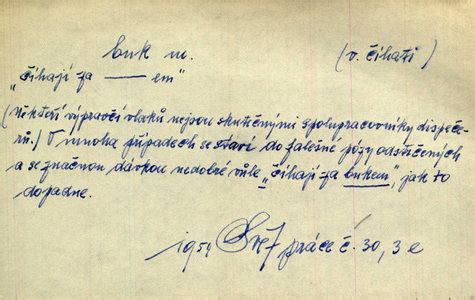 buk m. (v. číhati)
"číhají za —— em"
(Někteří výpravčí vlaků nejsou skutečnými spolupracovníky dispeče-
rů.) V mnoha případech se staví do falešné pózy odstrčených
a se značnou dávkou nedobré vůle "číhají za bukem", jak to
dopadne.
1954 práce č. 30, 3 e